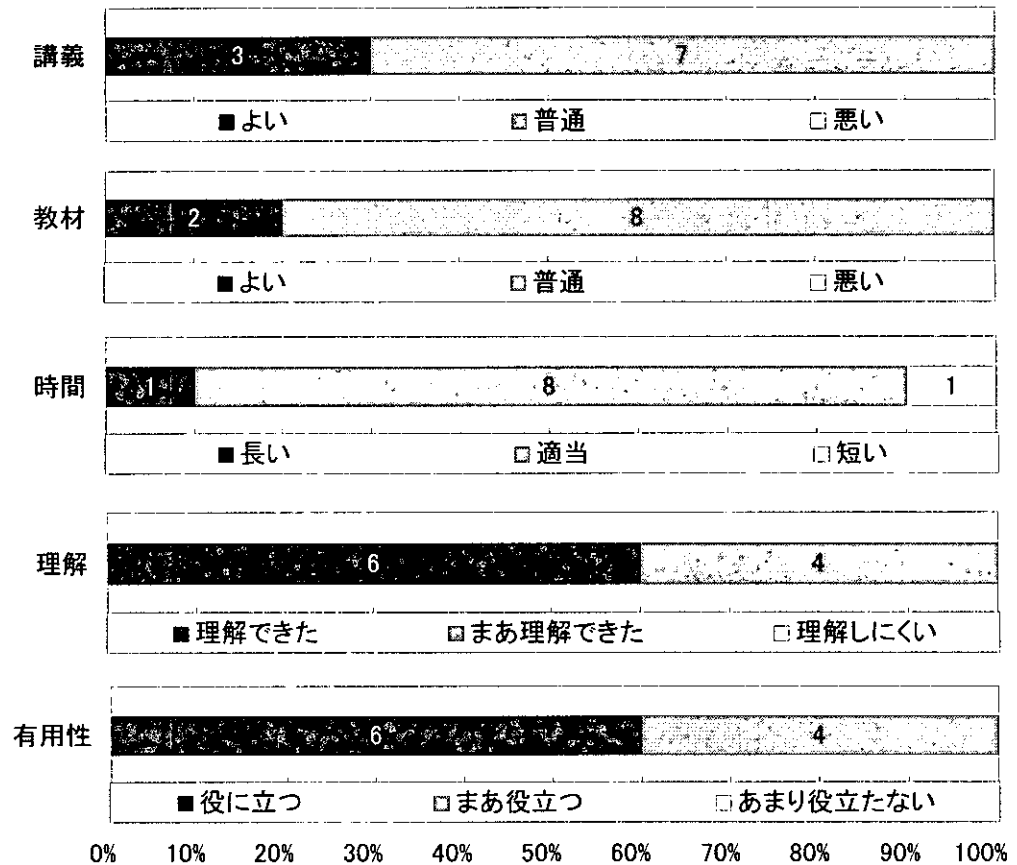 講義 3 7
■よい □普通 □悪い
教材 2 8
■よい □普通 □悪い
時間 1 8 1
■長い □適当 □短い
理解 6 4
■理解できた □まあ理解できた □理解しにくい
有用性 6 4
■役に立つ □まあ役立つ □あまり役立たない
0% 10% 20% 30% 40% 50% 60% 70% 80% 90% 100%